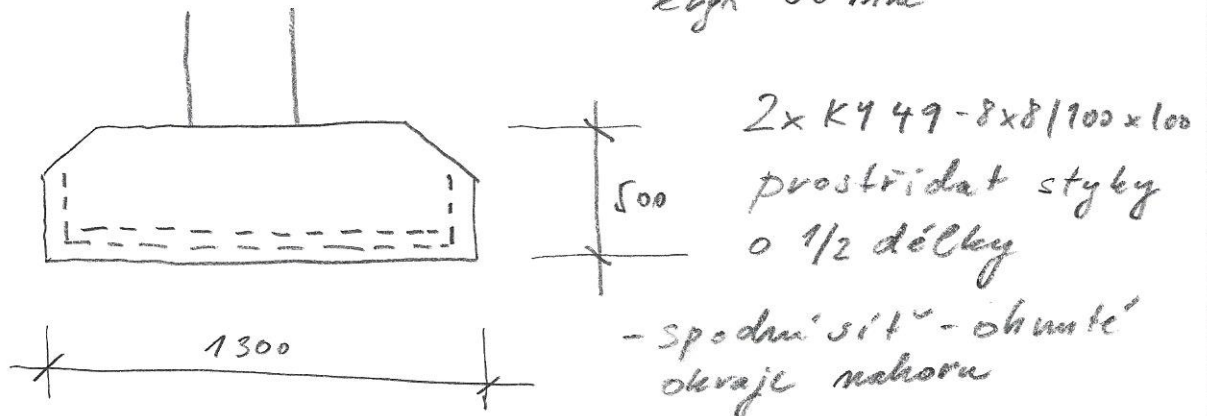 mm
2x KY 49-8x8/100x100
prostřídat styky
500
o 1/2 délky
-spodní síť - ohnuté
okraje nahoru
1300